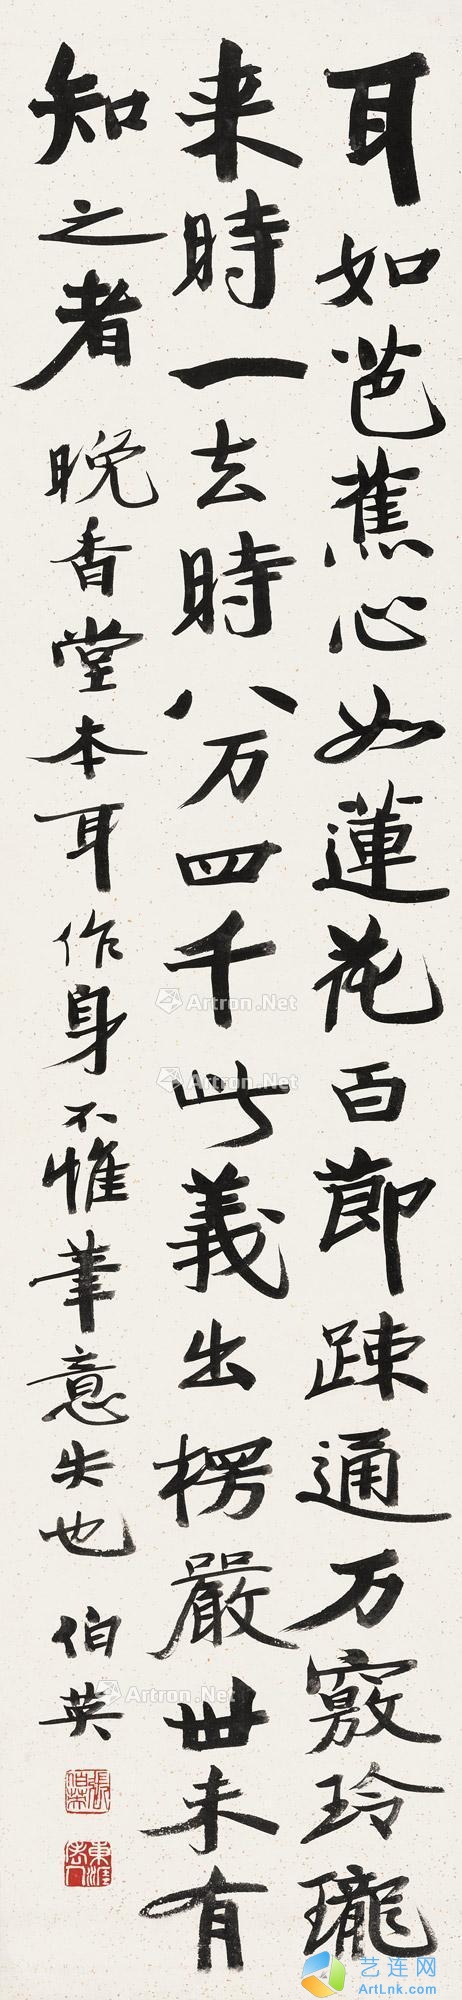 耳如芭蕉心如蓮花百節疎通万竅玲瓏
来時一去時八万四千此義出楞嚴世未有
知之者 晚香堂本耳作身不惟筆意失也 伯英
東涯老人
Artron.Net
Artron.Net
Artron.Net
艺连网
ArtLnk.com